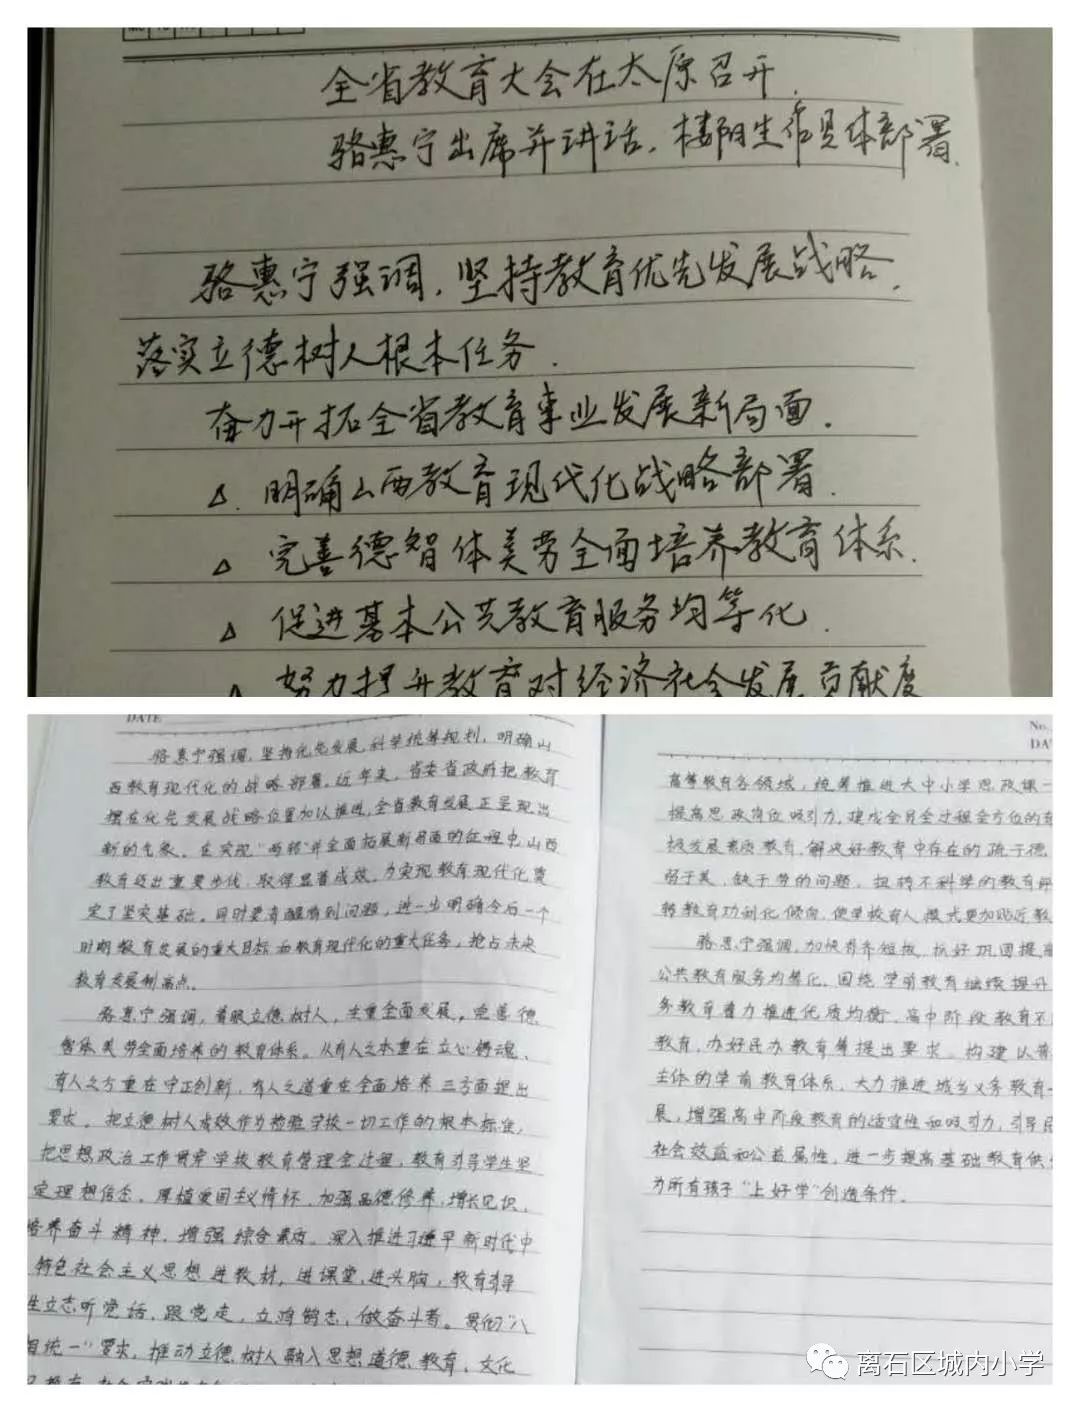 全省教育大会在太原召开.
骆惠宁出席并讲话,楼阳生作具体部署.
骆惠宁强调,坚持教育优先发展战略,
落实立德树人根本任务.
奋力开拓全省教育事业发展新局面.
△.明确山西教育现代化战略部署.
△ 完善德智体美劳全面培养教育体系.
△ 促进基本公共教育服务均等化.
△ 努力提升教育对经济社会发展贡献度
DATE
骆惠宁强调,坚持优先发展,科学统筹规划,明确山
西教育现代化的战略部署。近年来,省委省政府把教育
摆在优先发展战略位置加以推进,全省教育发展正呈现出
新的气象。在实现“两转”并全面拓展新局面的征程中,山西
教育迈出重要步伐,取得显著成效,为实现教育现代化奠
定了坚实基础。同时要清醒看到问题,进一步明确今后一个
时期教育发展的重大目标和教育现代化的重大任务,抢占未来
教育发展制高点。
骆惠宁强调,着眼立德树人,注重全面发展,完善德
智体美劳全面培养的教育体系。从育人之本重在立心铸魂,
育人之方重在守正创新,育人之道重在全面培养三方面提出
要求。把立德树人成效作为检验学校一切工作的根本标准,
把思想政治工作贯穿学校教育管理全过程,教育引导学生坚
定理想信念,厚植爱国主义情怀,加强品德修养,增长见识,
培养奋斗精神,增强综合素质。深入推进习近平新时代中
特色社会主义思想进教材,进课堂,进头脑,教育引导
生立志听党话,跟党走,立鸿鹄志,做奋斗者。贯彻“八
相统一”要求,推动立德树人融入思想道德教育,文化
No.
DA
高等教育各领域,统筹推进大中小学思政课一
提高思政岗位吸引力,建成全员全过程全方位的育
极发展素质教育,解决好教育中存在的疏于德,
弱于美,缺于劳的问题,扭转不科学的教育评
转教育功利化倾向,使学校育人模式更加贴近教
骆惠宁强调,加快补齐短板,抓好巩固提高
公共教育服务均等化。围绕学前教育继续提升
务教育着力推进优质均衡,高中阶段教育不
教育,办好民办教育等提出要求。构建以普
主体的学前教育体系,大力推进城乡义务教育一
展,增强高中阶段教育的适宜性和吸引力,引导民
社会效益和公益属性,进一步提高基础教育供
为所有孩子“上好学”创造条件.
离石区城内小学